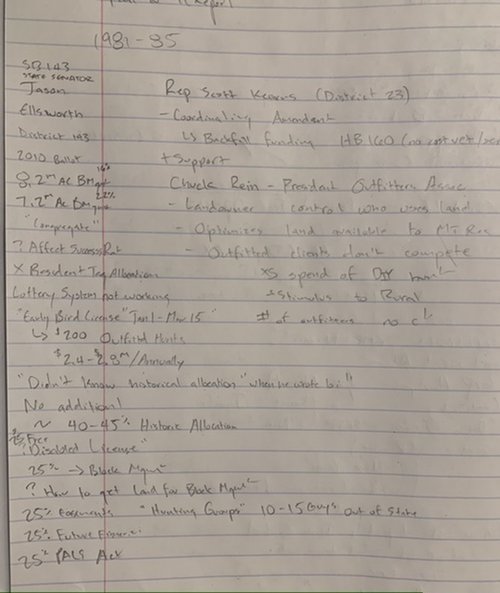 1981-85
SB143
STATE SENATOR
Jason
Ellsworth
District 143
2010 Ballot
16%
8.2m AC BMgmt
22%
7.2m AC BMgmt
"Congregate"
? Affect Success Rat
X Resident Tag Allocation
Lottery System not working
"Early Bird License" Jan 1 - Mar 15
↳ $200 Outfitted Hunts
$2.4-$2.8M/Annually
"Didn't know historical allocation" when he wrote
No addition!
~ 40-45% Historic Allocation
"Disabled License"
25% → Block Mgmt
? How to get Land for Block Mgmt
25% Easements "Hunting Groups" 10-15 Guys out of State
25% Future
25% PALS Act
Rep Scott Kearns (District 23)
- Coordinating Amendment
↳ Backfill funding HB160
+ Support
Chuck Rein - President Outfitters Assoc
- Landowner control who uses land
- Optimizes land available to MT Res
- Outfitted clients don't compete
xs spend of DIY
*Stimulus to Rural
# of outfitters no